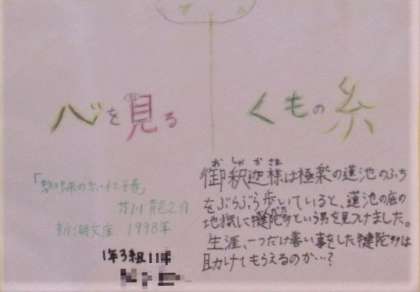 心を見る くもの糸
「蜘蛛の糸・杜子春」
芥川龍之介
新潮文庫 1998年
1年3組11番
御釈迦様は極楽の蓮池のふち
おしゃかさま
をぶらぶら歩いていると、蓮池の底の
地獄に犍陀多という男を見つけました。
生涯、一つだけ善い事をした犍陀多は
助けてもらえるのか…?